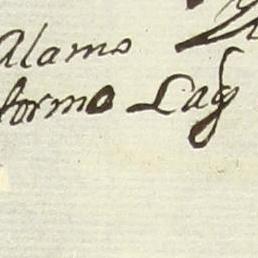 Alamo
formo Lag